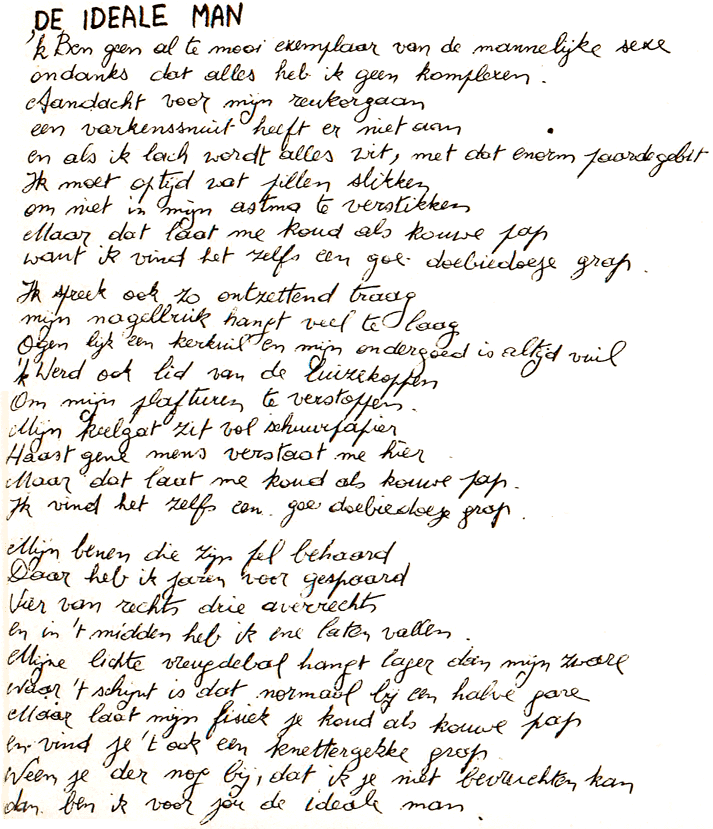 DE IDEALE MAN
'k Ben geen al te mooi exemplaar van de mannelijke sexe
ondanks dat alles heb ik geen komplexen.
Aandacht voor mijn reukorgaan
een varkenssnuit heeft er niet aan
en als ik lach wordt alles wit, met dat enorm paardegebit
Ik moet optijd wat pillen slikken
om niet in mijn astma te verstikken
Maar dat laat me koud als kouwe pap
want ik vind het zelfs een goe doebiedoeje grap.
Ik spreek ook zo ontzettend traag
mijn nagelbuik hangt veel te laag
Ogen lijk een kerkuil en mijn ondergoed is altijd vuil
'k Werd ook lid van de luizekoppen
Om mijn plafturen te verstoppen.
Mijn keelgat zit vol schuurpapier
Haast gene mens verstaat me hier.
Maar dat laat me koud als kouwe pap.
Ik vind het zelfs een goe doebiedoeje grap.
Mijn benen die zijn fel behaard
Daar heb ik jaren voor gespaard
Vier van rechts drie averrechts
en in 't midden heb ik ene laten vallen.
Mijne lichte vreugdebal hangt lager dan mijn zware
Waar 't schijnt is dat normaal bij een halve gare
Maar laat mijn fisiek je koud als kouwe pap
en vind je 't ook een knettergekke grap
Ween je der nog bij, dat ik je niet bevruchten kan
dan ben ik voor jou de ideale man.